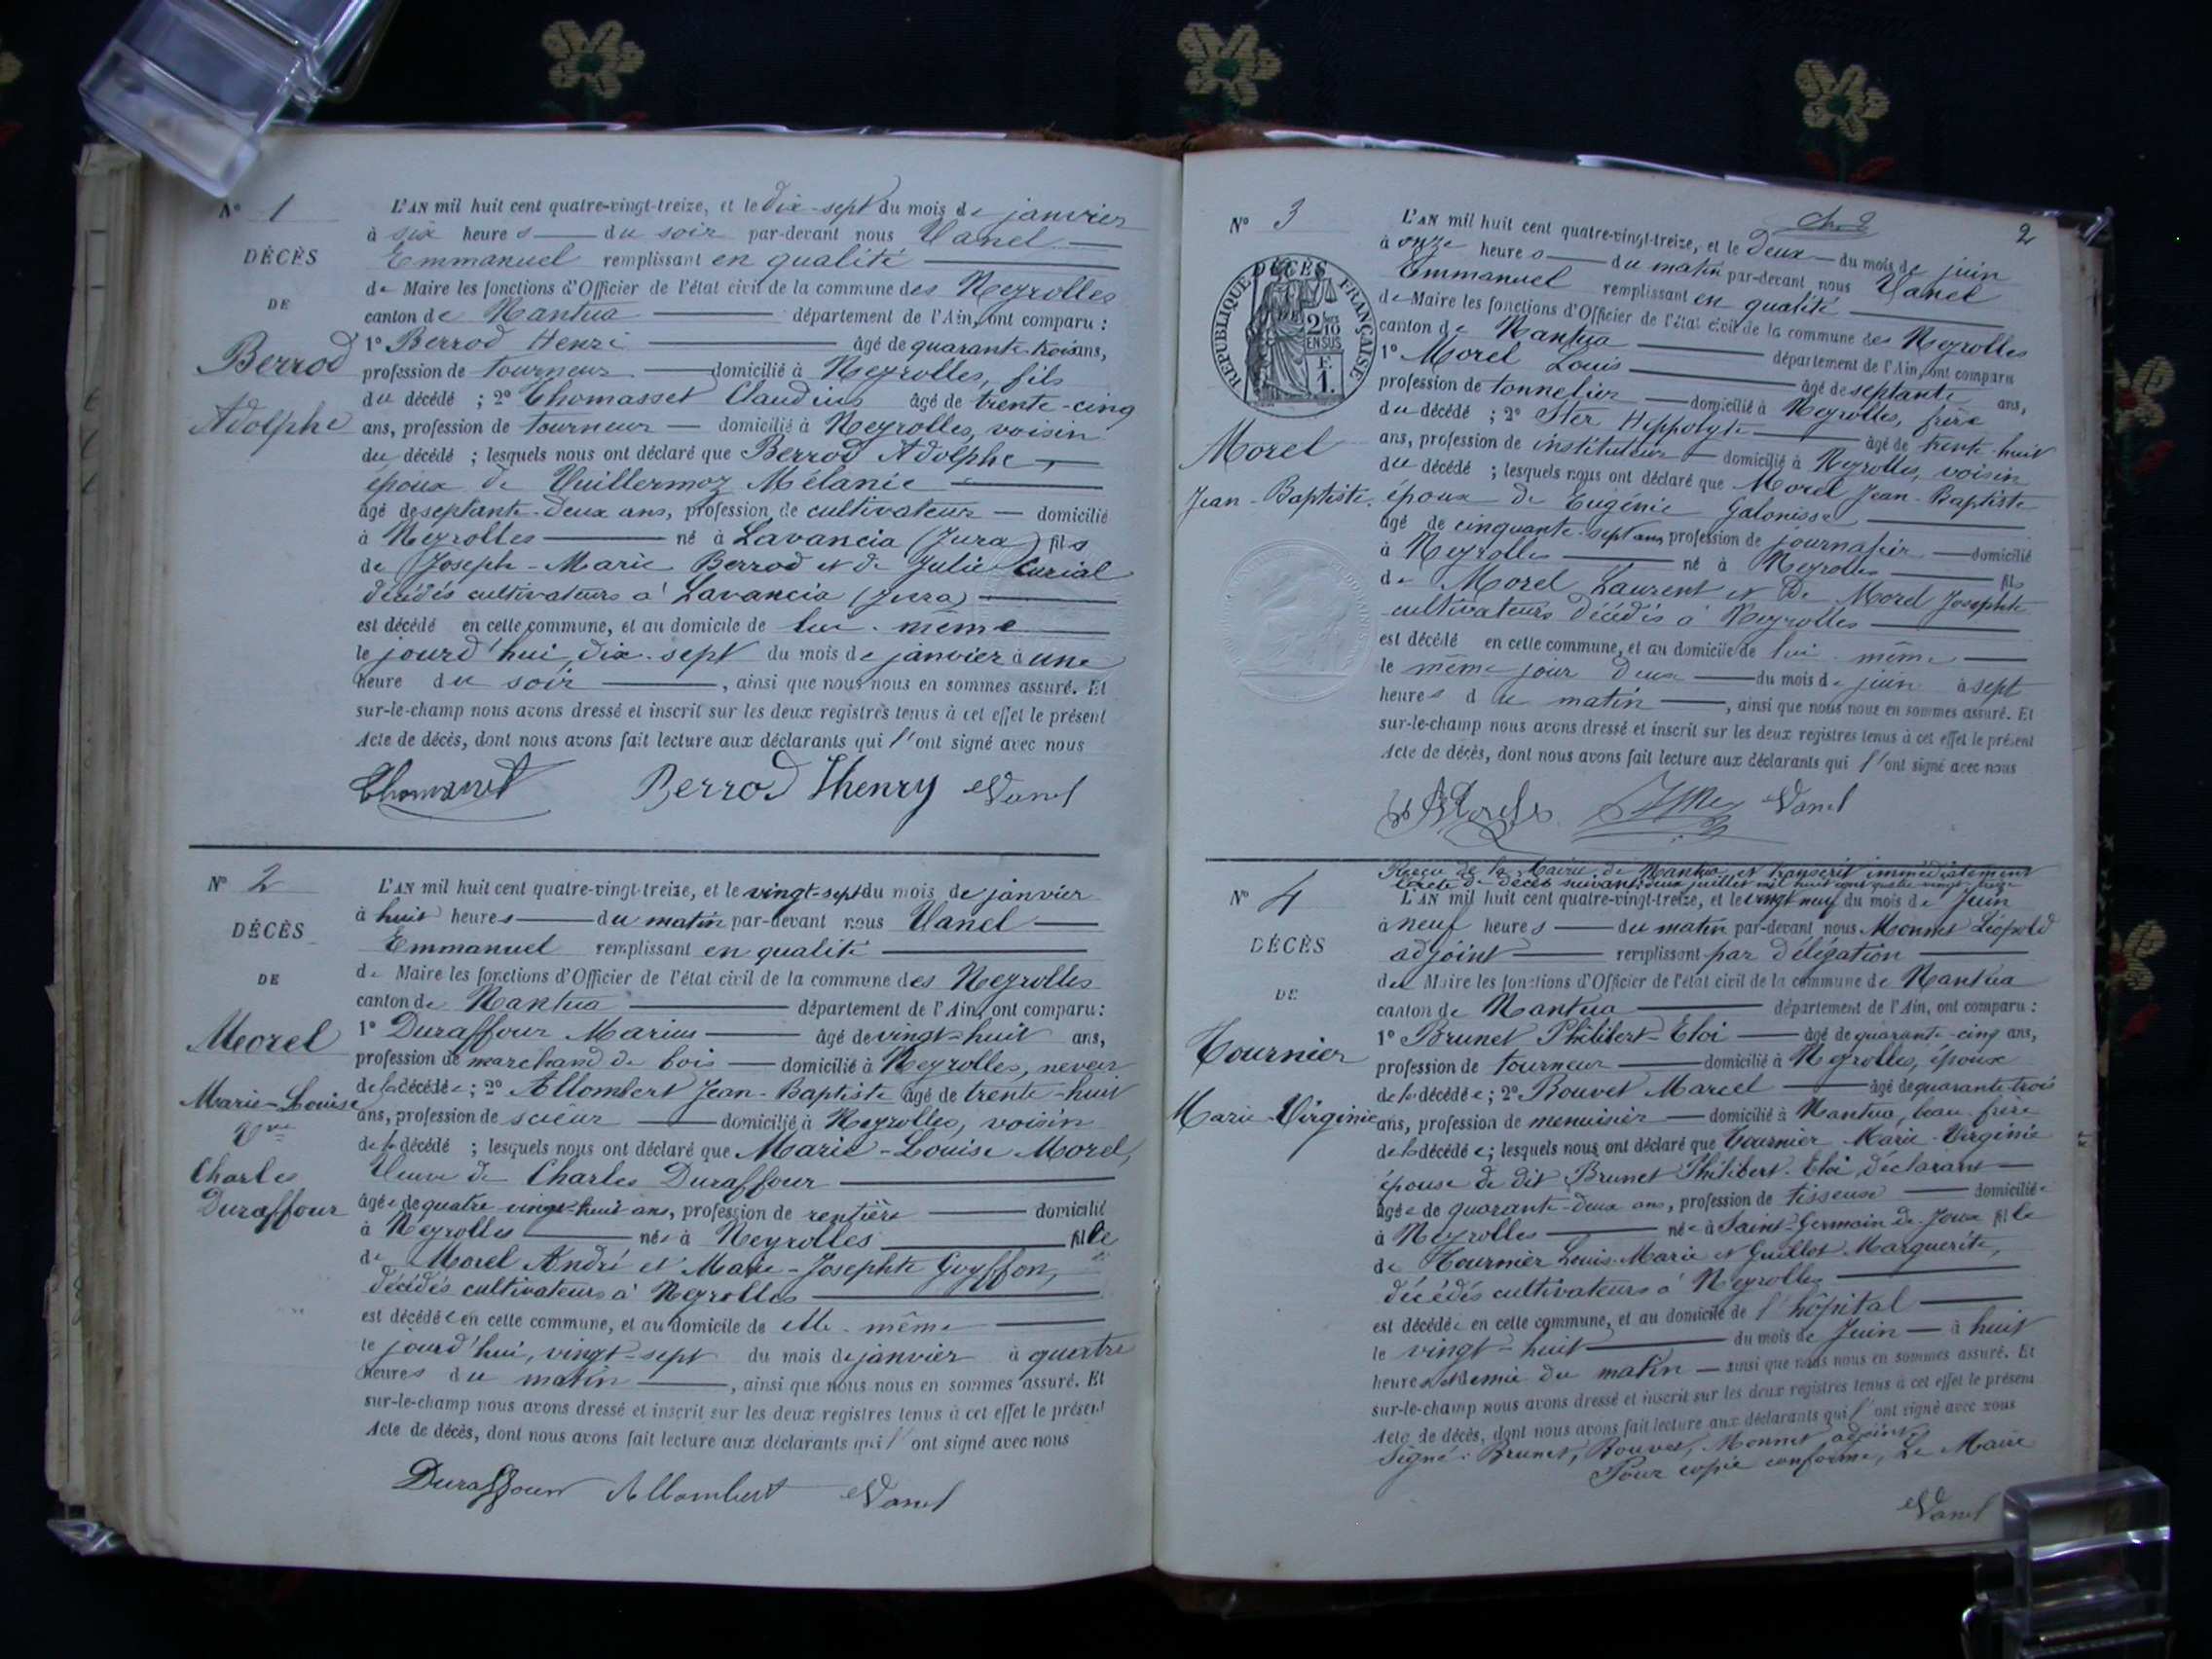 N° 1
DÉCÈS
DE
Berrod
Adolphe
L'AN mil huit cent quatre-vingt-treize, et le dix-sept du mois de janvier
à six heures du soir par-devant nous Vanel
Emmanuel remplissant en qualité
de Maire les fonctions d'Officier de l'état civil de la commune des Neyrolles
canton de Nantua département de l'Ain, ont comparu :
1° Berrod Henri âgé de quarante-trois ans,
profession de tourneur domicilié à Neyrolles, fils
du décédé ; 2° Thomasset Claudius âgé de trente-cinq
ans, profession de tourneur domicilié à Neyrolles, voisin
du décédé ; lesquels nous ont déclaré que Berrod Adolphe,
époux de Vuillermoz Mélanie
âgé de septante-deux ans, profession de cultivateur domicilié
à Neyrolles né à Lavancia (Jura) fils
de Joseph-Marie Berrod et de Julie Curial
décédés cultivateurs à Lavancia (Jura)
est décédé en cette commune, et au domicile de lui-même
le jourd'hui, dix-sept du mois de janvier à une
heure du soir, ainsi que nous nous en sommes assuré. Et
sur-le-champ nous avons dressé et inscrit sur les deux registres tenus à cet effet le présent
Acte de décès, dont nous avons fait lecture aux déclarants qui l'ont signé avec nous
Thomasset Berrod Thenry Vanel
N° 2
DÉCÈS
DE
Morel
Marie-Louise
Vve
Charles
Duraffour
L'AN mil huit cent quatre-vingt-treize, et le vingt-sept du mois de janvier
à huit heures du matin par-devant nous Vanel
Emmanuel remplissant en qualité
de Maire les fonctions d'Officier de l'état civil de la commune des Neyrolles
canton de Nantua département de l'Ain, ont comparu :
1° Duraffour Marius âgé de vingt-huit ans,
profession de marchand de bois domicilié à Neyrolles, neveu
de la décédée ; 2° Allombert Jean-Baptiste âgé de trente-huit
ans, profession de scieur domicilié à Neyrolles, voisin
de la décédé ; lesquels nous ont déclaré que Marie-Louise Morel,
Veuve de Charles Duraffour
âgée de quatre-vingt-huit ans, profession de rentière domicilié
à Neyrolles née à Neyrolles fille
de Morel André et Marie-Josephte Goyffon,
décédés cultivateurs à Neyrolles
est décédée en cette commune, et au domicile de elle-même
le jourd'hui, vingt-sept du mois de janvier à quatre
heures du matin, ainsi que nous nous en sommes assuré. Et
sur-le-champ nous avons dressé et inscrit sur les deux registres tenus à cet effet le présent
Acte de décès, dont nous avons fait lecture aux déclarants qui l'ont signé avec nous
Duraffour Allombert Vanel
2
N° 3
DÉCÈS
RÉPUBLIQUE FRANÇAISE
2/10
EN SUS
F.
1.
Morel
Jean-Baptiste
L'AN mil huit cent quatre-vingt-treize, et le deux du mois de juin
à onze heures du matin par-devant nous Vanel
Emmanuel remplissant en qualité
de Maire les fonctions d'Officier de l'état civil de la commune des Neyrolles
canton de Nantua département de l'Ain, ont comparu
1° Morel Louis âgé de septante ans,
profession de tonnelier domicilié à Neyrolles, frère
du décédé ; 2° Ster Hippolyte âgé de trente-huit
ans, profession de instituteur domicilié à Neyrolles, voisin
du décédé ; lesquels nous ont déclaré que Morel Jean-Baptiste
époux de Eugénie Galonisse
âgé de cinquante-sept ans, profession de journalier domicilié
à Neyrolles né à Neyrolles fils
de Morel Laurent et de Morel Josephte
cultivateurs décédés à Neyrolles
est décédé en cette commune, et au domicile de lui-même
le même jour deux du mois de juin à sept
heures du matin, ainsi que nous nous en sommes assuré. Et
sur-le-champ nous avons dressé et inscrit sur les deux registres tenus à cet effet le présent
Acte de décès, dont nous avons fait lecture aux déclarants qui l'ont signé avec nous
Vanel
Reçu de la Mairie de Nantua et transcrit immédiatement
l'acte de décès suivant: deux juillet mil huit cent quatre-vingt-treize
N° 4
DÉCÈS
DE
Tournier
Marie-Virginie
L'AN mil huit cent quatre-vingt-treize, et le vingt-neuf du mois de Juin
à neuf heures du matin par-devant nous Monnet Léopold
adjoint remplissant par délégation
du Maire les fonctions d'Officier de l'état civil de la commune de Nantua
canton de Nantua département de l'Ain, ont comparu :
1° Brunet Philibert-Eloi âgé de quarante-cinq ans,
profession de tourneur domicilié à Neyrolles, époux
de la décédée ; 2° Bouvet Marcel âgé de quarante-trois
ans, profession de menuisier domicilié à Nantua, beau-frère
de la décédée ; lesquels nous ont déclaré que Tournier Marie-Virginie
épouse de dit Brunet Philibert-Eloi, déclarant
âgée de quarante-deux ans, profession de tisseuse domiciliée
à Neyrolles née à Saint-Germain-de-Joux fille
de Tournier Louis-Marie et Guillot Marguerite,
décédés cultivateurs à Neyrolles
est décédée en cette commune, et au domicile de l'hôpital
le vingt-huit du mois de Juin à huit
heures et demie du matin ainsi que nous nous en sommes assuré. Et
sur-le-champ nous avons dressé et inscrit sur les deux registres tenus à cet effet le présent
Acte de décès, dont nous avons fait lecture aux déclarants qui l'ont signé avec nous
Signé : Brunet, Bouvet, Monnet adjoint.
Pour copie conforme, Le Maire
Vanel